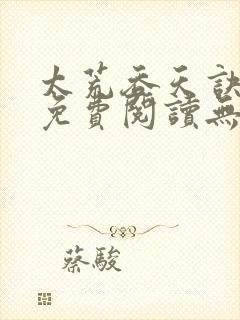 太荒吞天訣
免費閱讀無
蔡駿